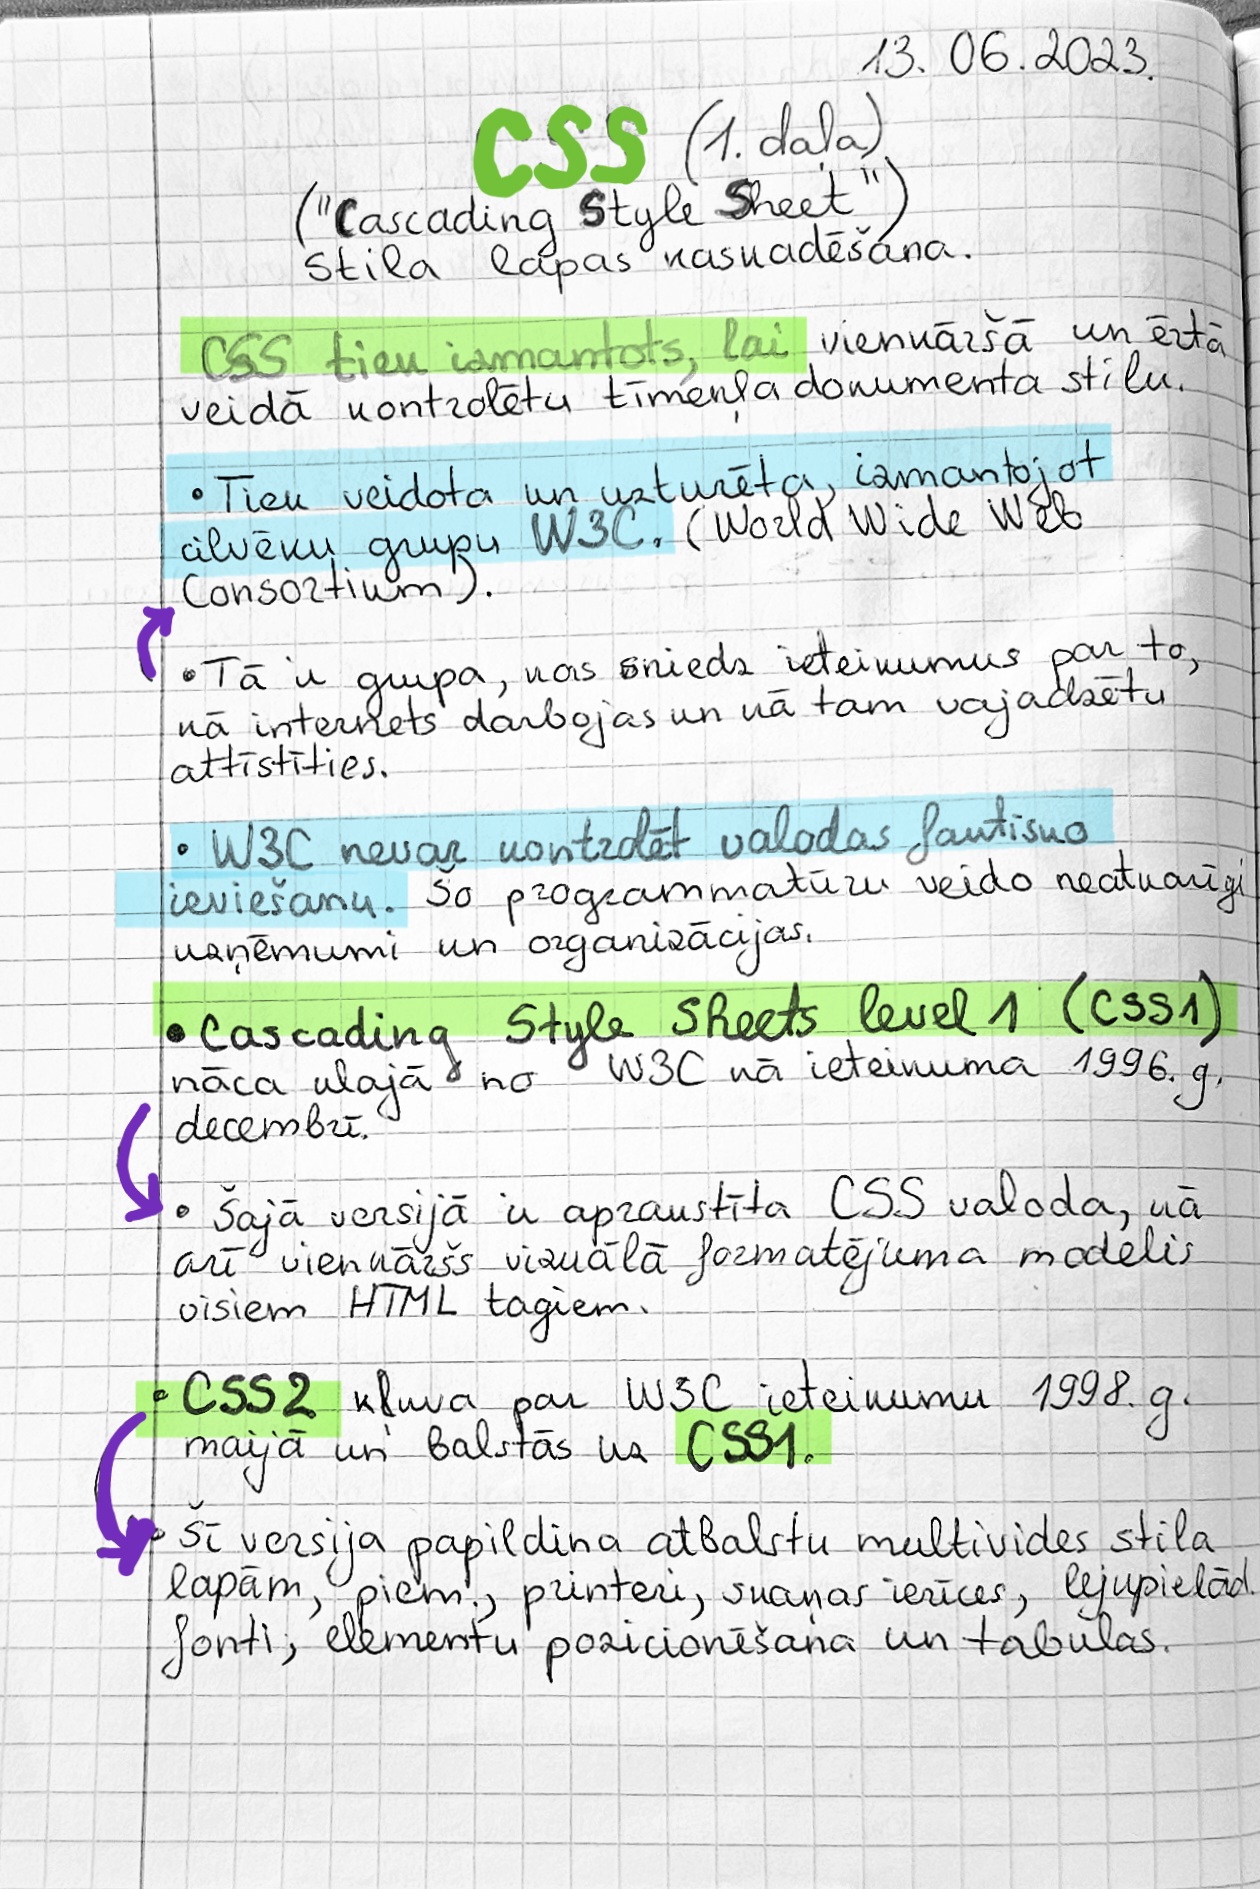 13. 06. 2023.
CSS (1. daļa)
("Cascading Style Sheet")
Stila lapas kaskadēšana.
CSS tiek izmantots, lai vienkāršā un ērtā
veidā kontrolētu tīmenļa dokumenta stilu.
• Tiek veidota un uzturēta, izmantojot
cilvēku grupu W3C. (World Wide Web
Consortium).
• Tā ir grupa, kas sniedz ieteikumus par to,
kā internets darbojas un kā tam vajadzētu
attīstīties.
• W3C nevar kontrolēt valodas faktisko
ieviešanu. Šo programmatūru veido neatkarīgi
uzņēmumi un organizācijas.
• Cascading Style Sheets level 1 (CSS1)
nāca klajā no W3C kā ieteikuma 1996. g.
decembrī.
• Šajā versijā ir aprakstīta CSS valoda, kā
arī vienkāršs vizuālā formatējuma modelis
visiem HTML tagiem.
• CSS2 kļuva par W3C ieteikumu 1998. g.
maijā un balstās uz CSS1.
• Šī versija papildina atbalstu multivides stila
lapām, piem., printeri, skaņas ierīces, lejupielād.
fonti, elementu pozicionēšana un tabulas.